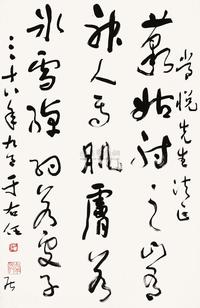 尝悦先生法正
藐姑射之山有
神人焉肌肤若
冰雪绰约若处子
三十六年九月于右任